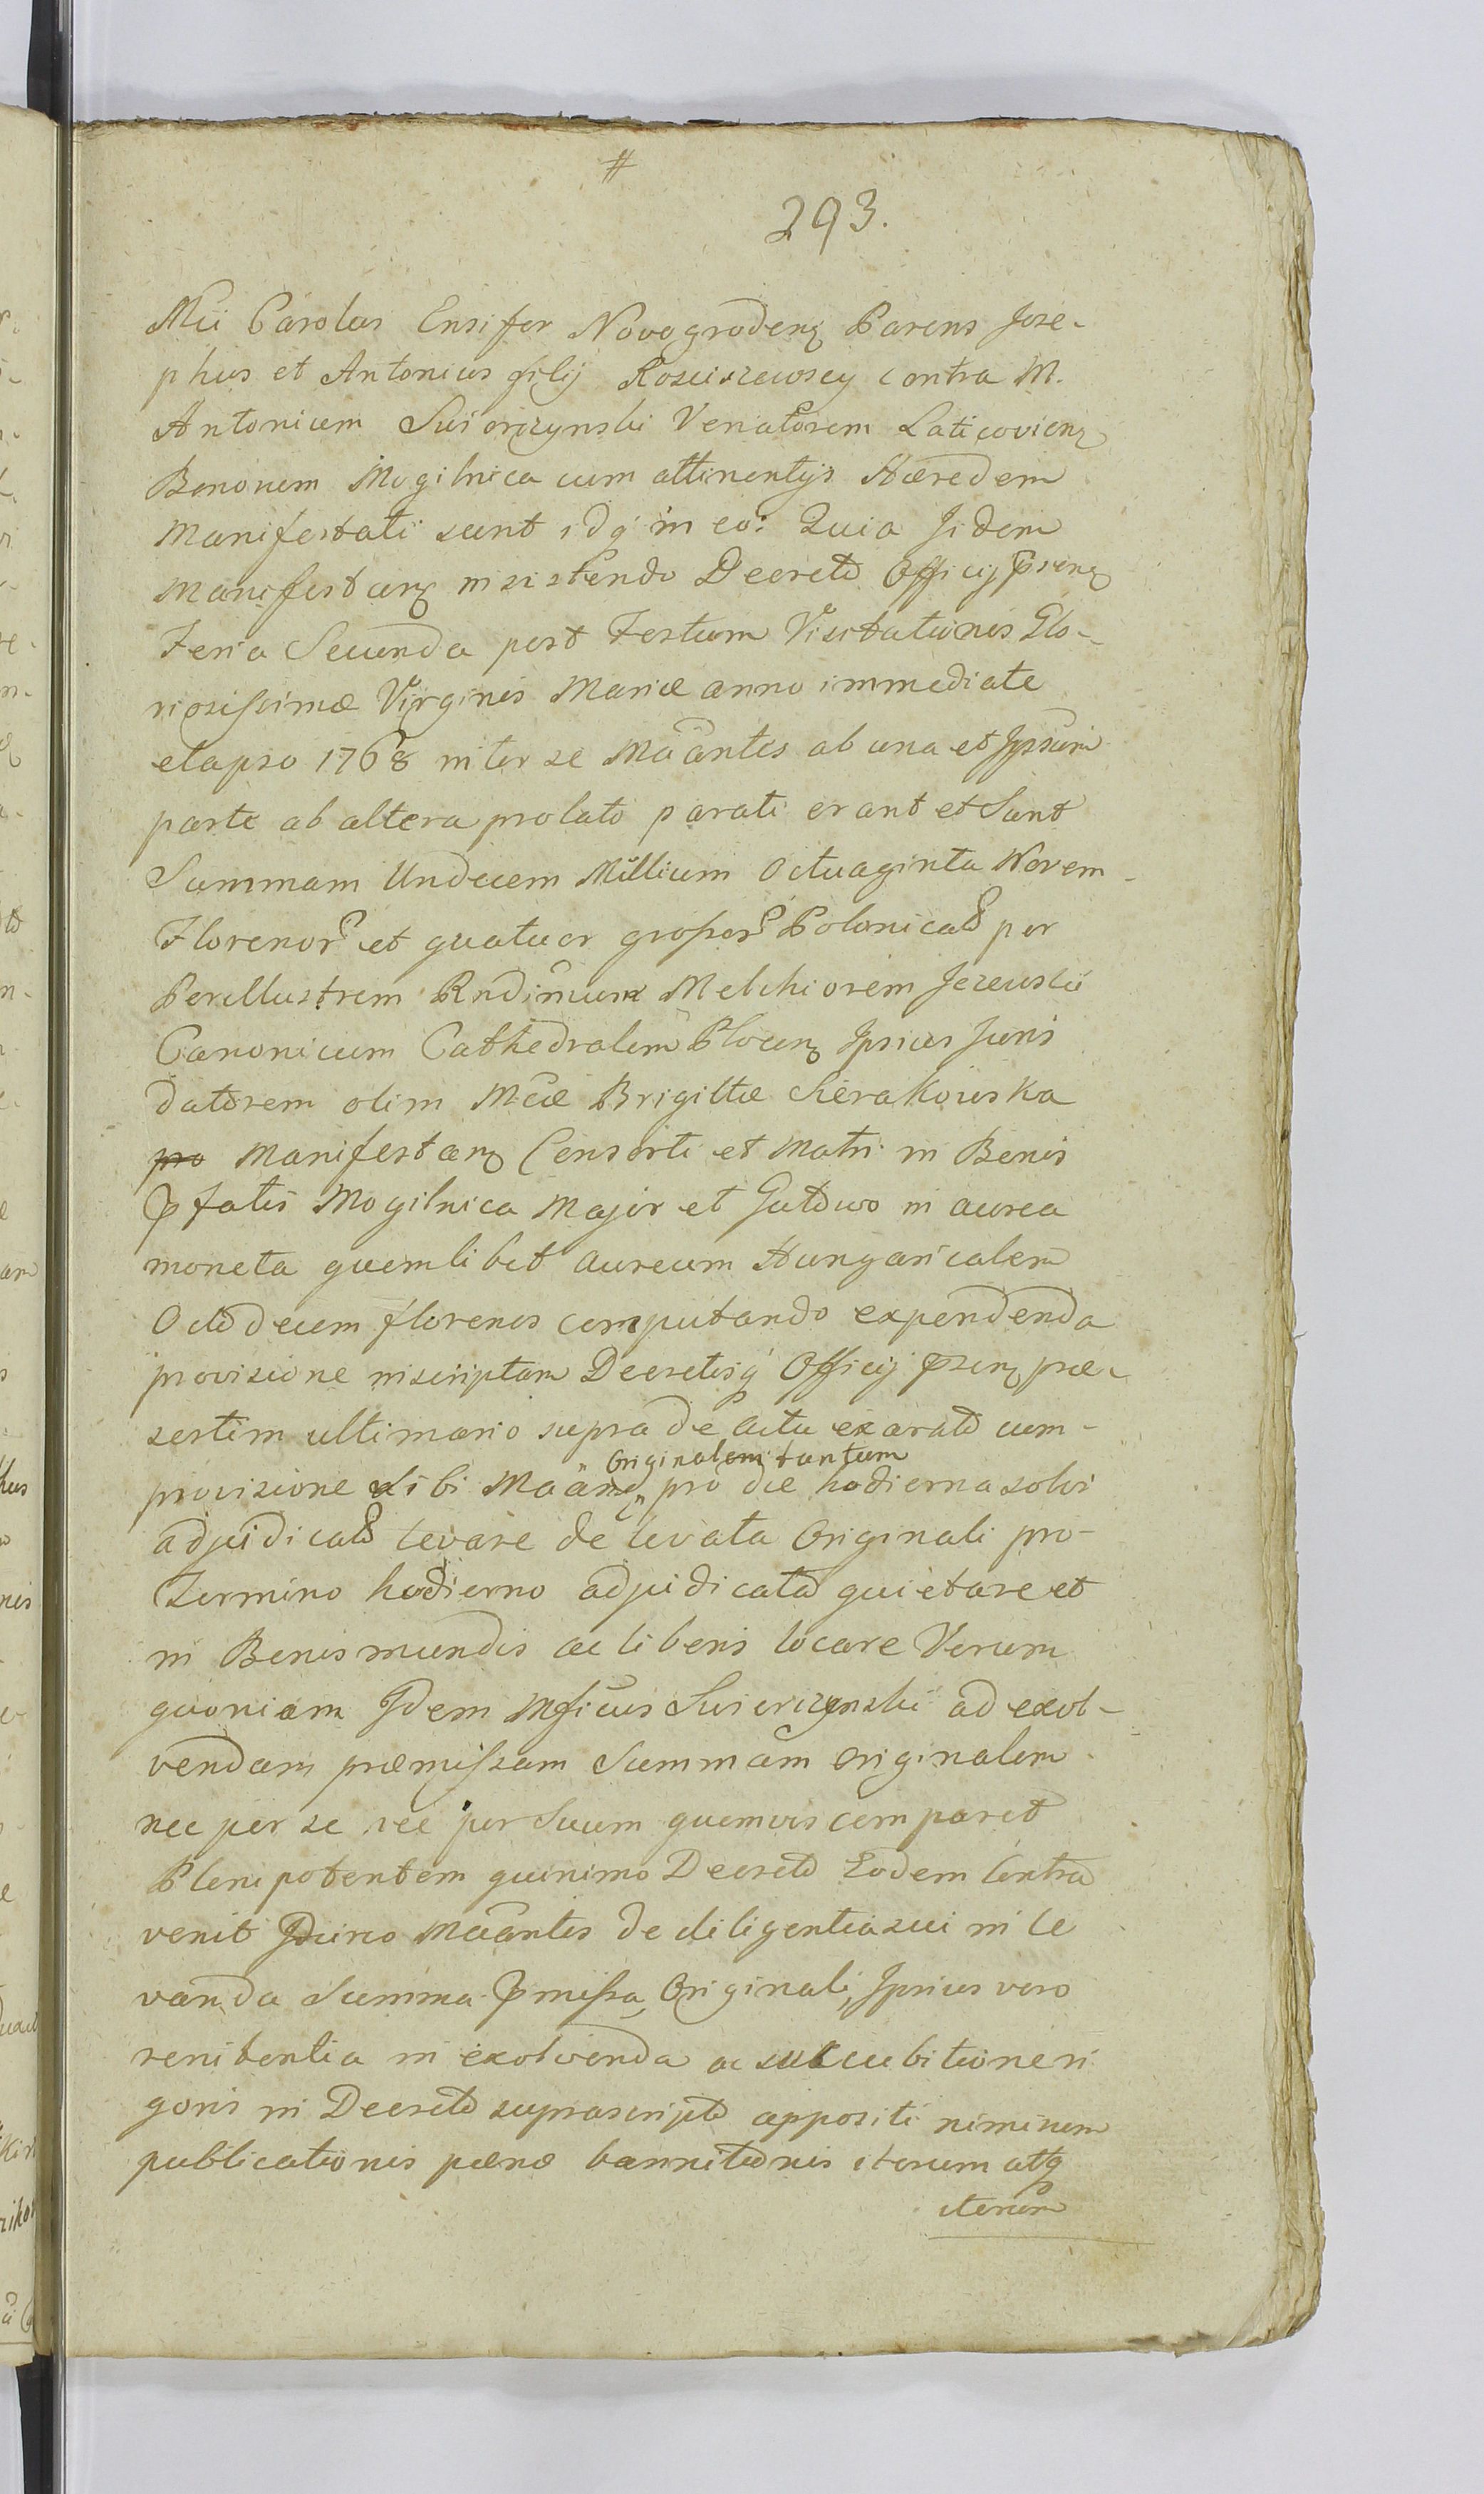 #
293.
Mci Carolus Ensifer Novogrodenꝫ Parens Jose-
phus et Antonius filij Rosciszewscy contra M.
Antonium Swiorczynski Venatorem Laticovienꝫ
Bonorum Mogilnica cum attinentijs Hæredem
Manifestati sunt idq́ in eo: Quia Jidem
Manifestanꝫ insistendo Decreto Officij p̄senꝫ
Feria Secunda post Festum Visitationis Glo-
riosissimæ Virginis Mariæ anno immediate
elapso 1768 inter se Mãantes ab una et Ipsum
parte ab altera prolato parati erant et Sunt
Summam Undecem Millium Octuaginta Novem
Florenor̃ et quatuor grossor̃ Polonical̃ per
Perillustrem Rndĩmum Melchiorem Jezewski
Canonicum Cathedralem Plocenꝫ Ipsius Juris
datorem olim Mcæ Brigittæ Sierakowska
pro Manifestanꝫ Consorti et Matri in Benis
P̄fatis Mogilnica Major et Gutowo in aurea
moneta quemlibet Aureum Hungaricalem
Octodecem florenos computando expendenda
provisione inscriptam Decretisq́ Officij p̄senꝫ præ-
sertim ultimario supra de actu exarato cum-
provisione sibi Mãanꝫ „Originalem tantum„ pro die hodierna solvi
adjudicat̃ levare de levata Originali pro-
Termino hodierno adjudicata quietare et
in Benis mundis ac liberis locare Verum
quoniam Idem Mficus Swierczynski ad exol-
vendam præmissam Summam Originalem
nec per se nec per Suum quemvis comparet
Plenipotentem quinimo Decreto Eodem Contra
venit Idcirco Mãantes de diligentia sui in le
vanda Summa P̄missa Originali, Ipsius vero
renitentia in exolvenda ac succubitione ri
goris in Decreto suprascripto appositi niminem
publicationis pænæ bannitionis iterum atq́
iterum